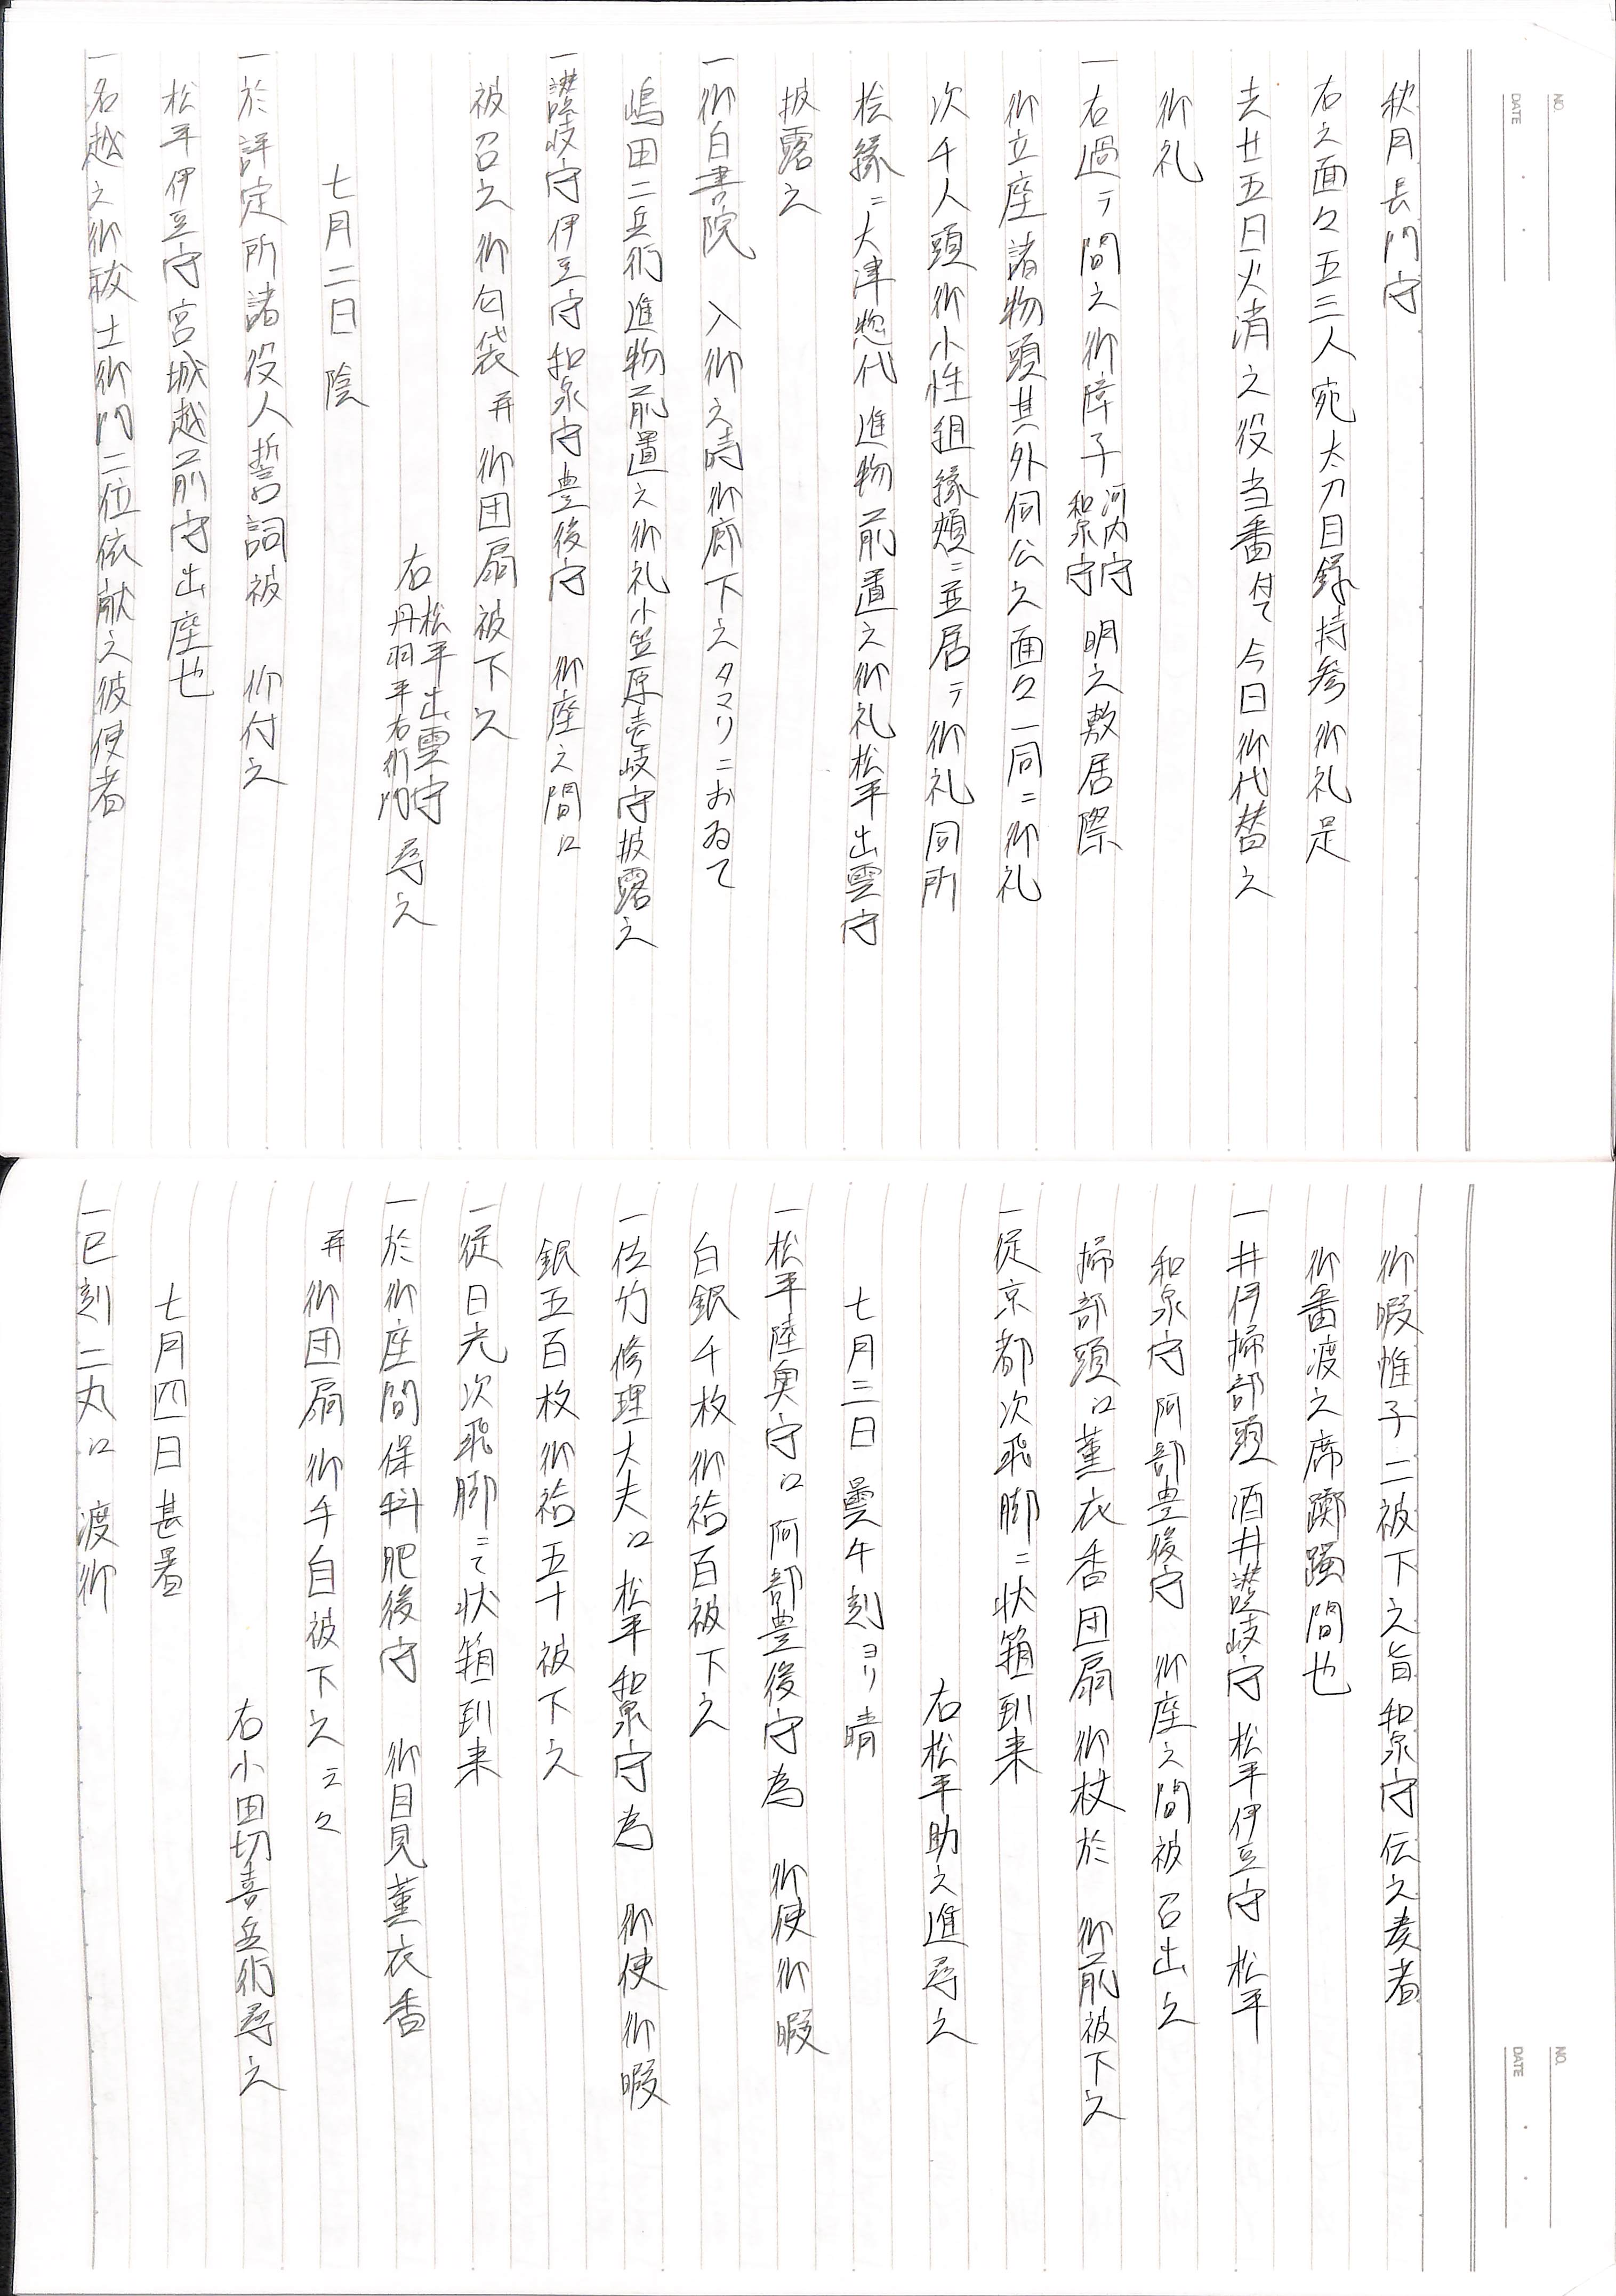 NO.
DATE
秋月長門守
右之面々五三人宛太刀目録持参御礼是
去廿五日火消之役当番付て今日御代替之
御礼
一右過テ間之御障子河内守和泉守明之敷居際
御立座諸物頭其外伺公之面々一同ニ御礼
次千人頭御小性組縁頬ニ並居テ御礼同所
桧縁ニ大津惣代進物前置之御礼松平出雲守
披露之
一御白書院 入御之時御廊下之タマリニおゐて
嶋田二兵衛進物前置之御礼小笠原壱岐守披露之
一讃岐守伊豆守和泉守豊後守 御座之間江
被召之御匂袋并御団扇被下之
右松平出雲守丹羽平右衛門尋之
七月二日陰
一於評定所諸役人誓詞被 仰付之
松平伊豆守宮城越前守出座也
一名越之御祓土御門二位依献之彼使者
NO.
DATE
御暇帷子二被下之旨和泉守伝之奏者
御番渡之席躑躅間也
一井伊掃部頭酒井讃岐守松平伊豆守松平
和泉守阿部豊後守 御座之間被召出之
掃部頭江薫衣香団扇御杖於 御前被下之
一従京都次飛脚ニ状箱到来
右松平助之進尋之
七月三日曇午刻ヨリ晴
一松平陸奥守江阿部豊後守為 御使御暇
白銀千枚御袷百被下之
一佐竹修理大夫江松平和泉守為 御使御暇
銀五百枚御袷五十被下之
一従日光次飛脚ニて状箱到来
一於御座間保科肥後守 御目見薫衣香
并御団扇御手自被下之云々
右小田切喜兵衛尋之
七月四日甚暑
一巳刻二丸江 渡御